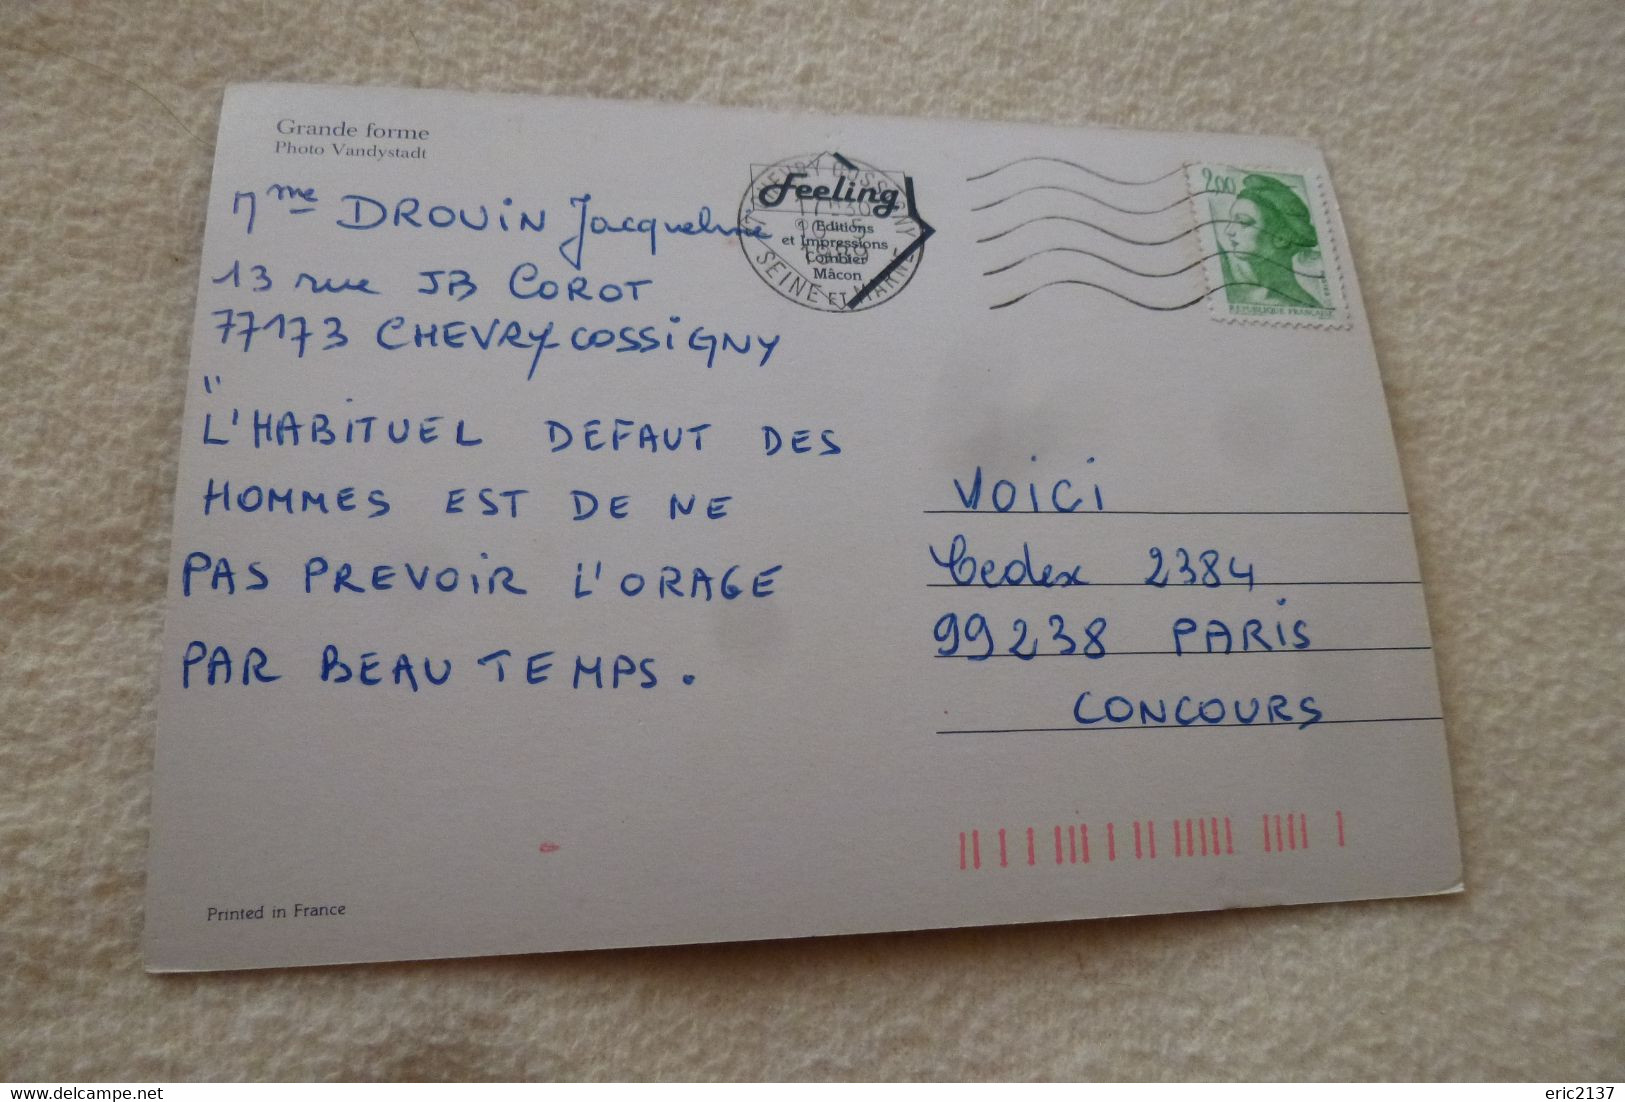 Grande forme
Photo Vandystadt
Mme DROUIN Jacqueline
13 rue JB COROT
77173 CHEVRY COSSIGNY
"
L'HABITUEL DEFAUT DES
HOMMES EST DE NE
PAS PREVOIR L'ORAGE
PAR BEAU TEMPS.
Printed in France
Feeling
© Editions
et Impressions
Combier
Mâcon
CHEVRY COSSIGNY
17-30
10-5
SEINE ET MARNE
2,00
REPUBLIQUE FRANÇAISE
VOICI
Cedex 2384
99238 PARIS
CONCOURS
delcampe.net
eric2137